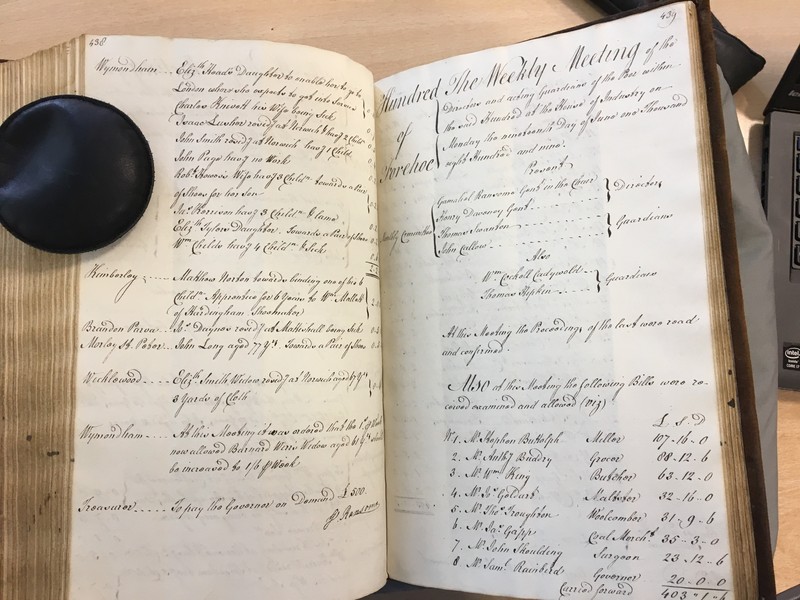 438
Wymondham Eliz.th Heads Daughter to enable her to go to
London where she expects to get into Service
Charles Knevett his Wife being Sick
Isaac Lusher resid.g at Norwich hav.g 2 Child.n
John Smith resid.g at Norwich hav.g 1 Child
John Page hav.g no Work
Rob.t Howes's Wife hav.g 3 Child.n towards a Pair
of Shoes for her Son
Ja.s Harrison hav.g 3 Child.n & lame
Eliz.th Tylers Daughter. Towards a Pair of Shoes
W.m Childs hav.g 4 Child.n & Sick
Kimberley Matthew Norton towards binding one of his 6
Child.n Apprentice for 6 Years to W.m Mallett
of Hardingham Shoemaker
Brandon Parva Ja.s Daynes resid.g at Mattishall being Sick
Morley S.t Peter John Long aged 77 Y.rs Towards a Pair of Shoes
Wicklewood Eliz.th Smith Widow resid.g at Norwich aged
3 Yards of Cloth
Wymondham At this Meeting it was ordered that the 1/ p Week
now allowed Barnard Wins's Widow aged
be increased to 1/6 p Week
Treasurer To pay the Governor on Demand £ 500.
G Ransome
439
Hundred of Forehoe
The Weekly Meeting of the
Directors and acting Guardians of the Poor within
the said Hundred at the House of Industry on
Monday the nineteenth Day of June one Thousand
eight Hundred and nine.
Present
Gamaliel Ransome Gent in the Chair
Henry Dewney Gent
Directors
Weekly Committee
Thomas Swanton
John Callow
Guardians
Also
W.m Cockell Cadywold
Thomas Hipkin
Guardians
At this Meeting the Proceedings of the last were read
and confirmed.
Also at this Meeting the following Bills were re-
ceived examined and allowed (viz)
£ S D
N.o 1. M.r Stephen Butolph Miller 107-16-0
2. M.r Anth.y Buddry Grocer 88-12-6
3. M.r W.m King Butcher 63-12-0
4. M.r Ja.s Goldart Maltster 32-16-0
5. M.r Tho.s Troughton Woolcomber 31-9-6
6. M.r Ja.s Gapp Coal Merch.t 35-3-0
7. M.r John Shoulding Surgeon 23-12-6
8 M.r Sam.l Rainbird Governor 20-0-0
Carried forward 403 " 1 " 6
intel
CORE i7